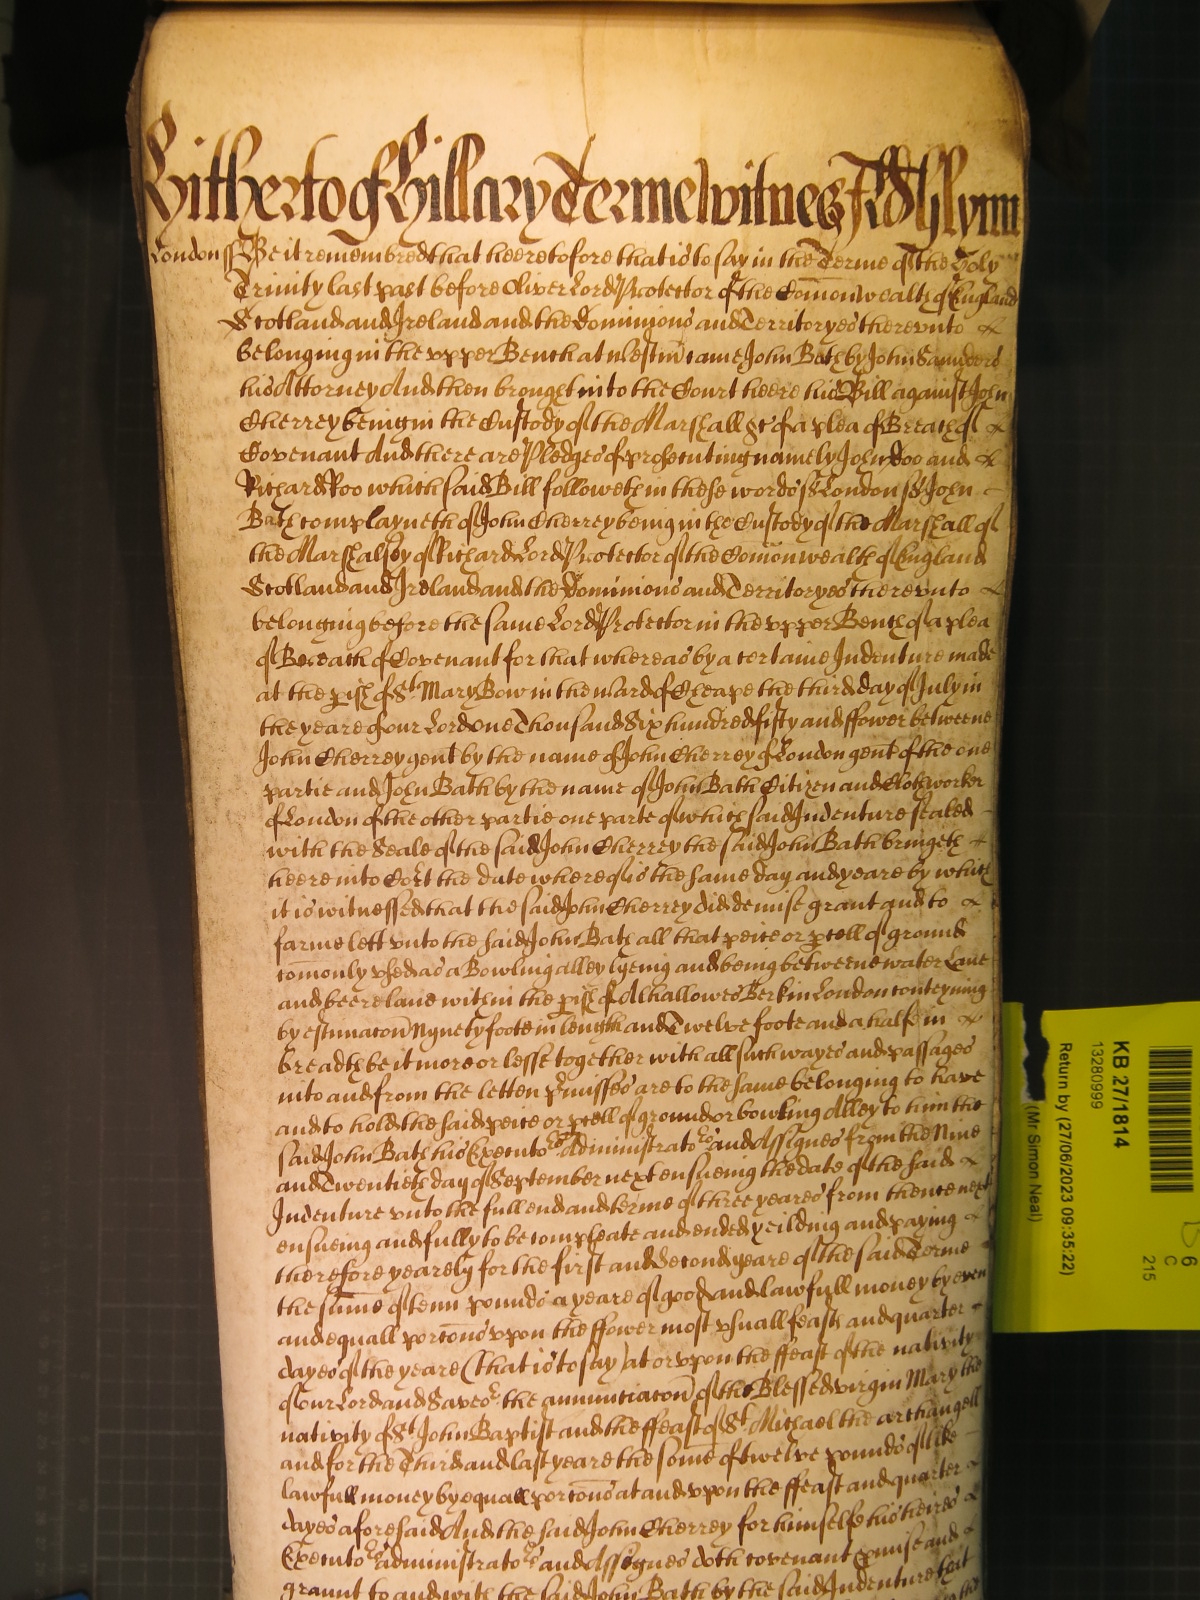 Hitherto of Hillary Terme witnes J Ro Glynn
London ss Be it remembred that heeretofore that is to say in the Terme of the Holy
Trinity last past before Oliver Lord Protector of the Comonwealth of England
Scotland and Ireland and the Dominions and Territoryes therevnto
belonging in the vpper Bench at Westm came John Bath by John Saunders
his Attorney And then brought into the Court heere his Bill against John
Cherrey being in the Custody of the Marshall &c of a plea of Breach of
Covenant And there are Pledges of prosecuting namely John Doo and
Richard Roo which said Bill followeth in these words ss London ss John
Bath complayneth of John Cherrey being in the Custody of the Marshall of
the Marshalsey of Richard Lord Protector of the Comonwealth of England
Scotland and Ireland and the Dominions and Territoryes therevnto
belonging before the same Lord Protector in the vpper Bench of a plea
of Breach of Covenant for that whereas by a certaine Indenture made
at the pish of St Mary Bow in the ward of Cheape the third day of July in
the yeare of our Lord one Thousand Six hundred fifty and ffower betweene
John Cherrey gent by the name of John Cherrey of London gent of the one
partie and John Bath by the name of John Bath Citizen and Clothworker
of London of the other partie one parte of which said Indenture sealed
with the Seale of the said John Cherrey the said John Bath bringeth
heere into Cort the date whereof is the same day and yeare by which
it is witnessed that the said John Cherrey did demise grant and to
farme lett vnto the said John Bath all that peice or pcell of ground
comonly vsed as a Bowling alley lyeing and being betweene water Lane
and beere lane within the pish of Alhallowes Berkin London conteyning
by estimacon Nynety foote in length and Twelve foote and a halfe in
breadth be it more or lesse together with all such wayes and passages
into and from the letten pmisses are to the same belonging to have
and to hold the said peice or pcell of ground or bowling Alley to him the
said John Bath his Executors Administrators and Assignes from the Nine
and Twentieth day of September next ensueing the date of the said
Indenture vnto the full end and terme of three yeares from thence next
ensueing and fully to be compleate and ended yeilding and paying
therefore yearely for the first and Second yeare of the said Terme
the sume of tenn pounds a yeare of good and lawfull money by even
and equall porcons vpon the ffower most vsuall feasts and quarter
dayes of the yeare (that is to say) at or vpon the ffeast of the nativity
of our Lord and Saveor the annunciacon of the Blessed virgin Mary the
nativity of St John Baptist and the ffeast of St Michael the archangell
and for the Third and last yeare the some of twelve pounds of like
lawfull money by equall porcons at and vpon the ffeast and quarter
dayes aforesaid And the said John Cherrey for himselfe his heires
Executors administrators and Assignes doth covenant pmise and
graunt to and with the said John Bath by the said Indenture that
KB 27/1814
13280999
Return by (27/06/2023 09:35:22)
(Mr Simon Neal)
C
215